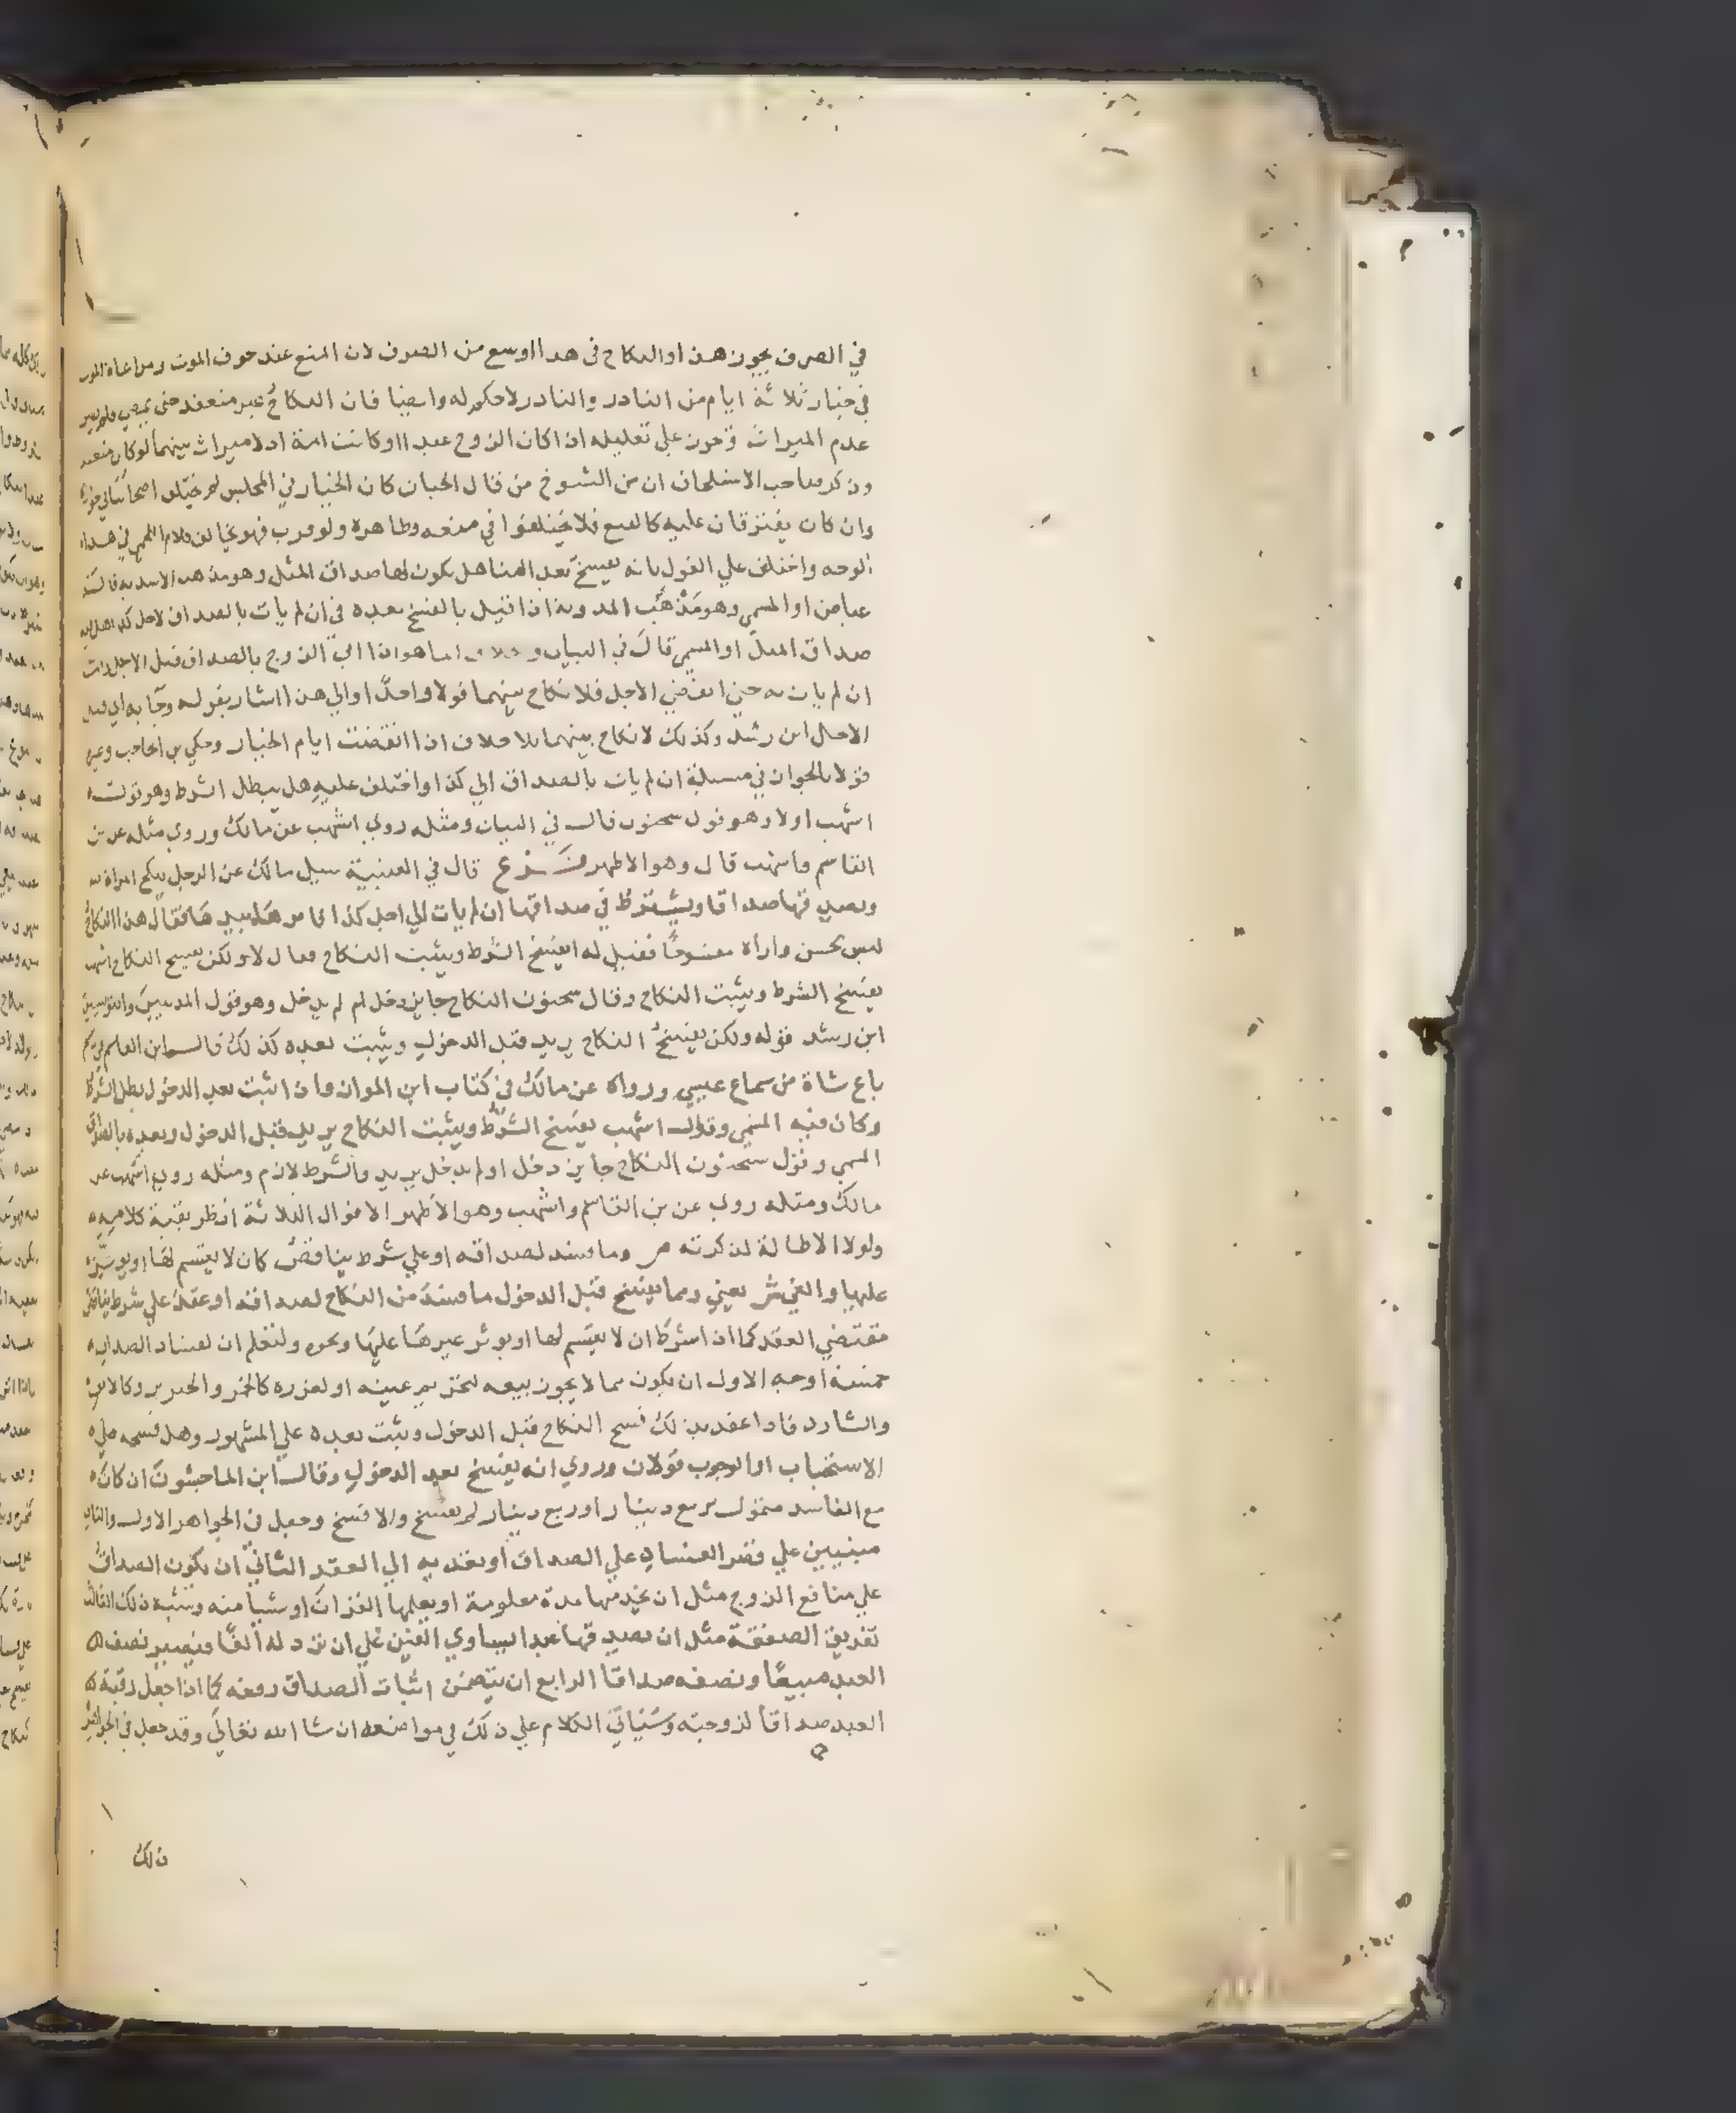 في الصرف يجوز هذا والنكاح في هذا اوسع من الصرف لان المنع عند خوف الموت ومراعاة الموت
في خيار ثلاثة ايام من النادر والنادر لا حكم له وايضا فان النكاح غير منعقد حتى يمضي
عدم الميراث علي تعليله اذا كان الزوج عبدا او كانت امة اذ لا ميراث بينهما لو كان منعقد
وذكر صاحب الاستلحاق ان من الشيوخ من قال اذا كان الخيار في المجلس لم يختلف اصحابنا في جوازه
وان كان يفترقان عليه كالبيع فلا يختلفوا في منعه وظاهره ولو قرب فهو مخالف لكلام اللخمي في هذا
الوجه واختلف علي القول بانه يفسخ بعد البنا هل يكون لها صداق المثل وهو مذهب الاسدية قاله
عياض او المسمي وهو مذهب المدونة اذا قيل بالفسخ بعده في ان لم يات بالصداق لاجل كذا
صداق المثل او المسمي قال في البيان و انما هو اذا اتي الزوج بالصداق قبل الاجل
ان لم يات به حتي انقضي الاجل فلا نكاح بينهما قولا واحدا والي هذا اشار بقوله وجا به
الاجل ابن رشد وكذلك لا نكاح بينهما بلا خلاف اذا انقضت ايام الخيار وحكي بن الحاجب وغيره
قولا بالجواز في مسيلة ان لم يات بالصداق الي كذا واختلف عليه هل يبطل الشرط وهو قول
اشهب اولا وهو قول سحنون قال في البيان ومثله روي اشهب عن مالك وروي مثله عن بن
القاسم واشهب قال وهو الاظهر فرع قال في العتبية سيل مالك عن الرجل ينكح امراة
ويصدقها صداقا ويشترط في صداقها ان لم يات الي اجل كذا فامرها بيدها فقال هذا النكاح
ليس بحسن واراه مفسوخا فقيل له ايفسخ الشرط ويثبت النكاح فقال لا ولكن يفسخ النكاح اشهب
يفسخ الشرط ويثبت النكاح وقال سحنون النكاح جايز دخل ام لم يدخل وهو قول المدنيين
ابن رشد قوله ولكن يفسخ النكاح يريد قبل الدخول ويثبت بعده كذلك قال ابن القاسم في رسم
باع شاة من سماع عيسي ورواه عن مالك في كتاب ابن المواز واذا ثبت بعد الدخول بطل الشرط
وكان فيه المسمي وقول اشهب يفسخ الشرط ويثبت النكاح يريد قبل الدخول وبعده بالصداق
المسمي وقول سحنون النكاح جايز دخل او لم يدخل يريد والشرط لازم ومثله روي اشهب عن
مالك ومثله روي عن بن القاسم واشهب وهو الاظهر الاقوال الثلاثة انظر بقية كلامه
ولولا الاطالة لذكرته ص وما فسد لصداقه او علي شرط يناقض كان لا يقسم لها او يوثر
عليها والغي ش يعني ومما يفسخ قبل الدخول ما فسد من النكاح لصداقه او عقد علي شرط يناقض
مقتضي العقد كما اذا شرط ان لا يقسم لها او يوثر غيرها عليها ونحوه ولتعلم ان لفساد الصداق
خمسة اوجه الاول ان يكون مما لا يجوز بيعه لتحريم عينه او لغرره كالخمر والخنزير وكالابق
والشارد فاذا عقد بذلك فسخ النكاح قبل الدخول ويثبت بعده علي المشهور وهل فسخه علي
الاستحباب او الوجوب قولان وروي انه يفسخ بعد الدخول وقال ابن الماجشون ان كان
مع الفاسد متمول بربع دينار او ربع دينار لم يفسخ والا فسخ وجعل في الجواهر الاول والثاني
مبنيين علي قصر الفساد علي الصداق او تعديه الي العقد الثاني ان يكون الصداق
علي منافع الزوج مثل ان يخدمها مدة معلومة او يعلمها القران او شيا منه وشبه ذلك الثالث
تفريق الصفقة مثل ان يصدقها عبدا يساوي الفين علي ان ترد له الفا فيصير نصف
العبد مبيعا ونصفه صداقا الرابع ان يتضمن اثبات الصداق رفعه كما اذا جعل رقبة
العبد صداقا لزوجته وسياتي الكلام علي ذلك في مواضعه ان شا الله تعالي وقد جعل في الجواهر
ذلك